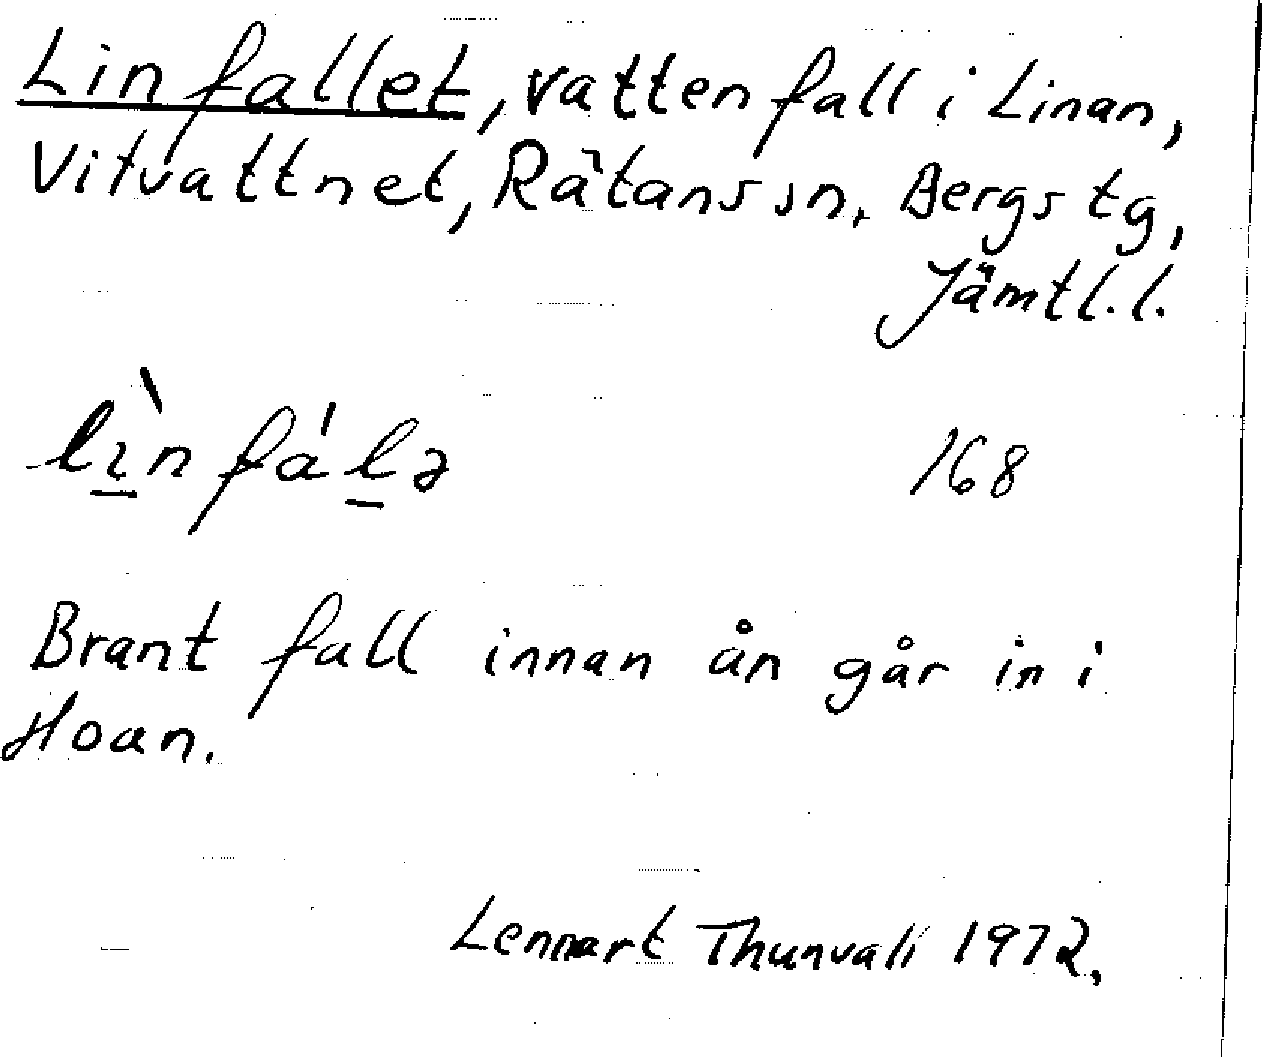 Linfallet, vattenfall i Linan,
Vitvattnet, Rätans sn, Bergs tg,
Jämtl. l.
lı̀nfálə 168
Brant fall innan ån går in i
Hoan.
Lennart Thunvall 1972.